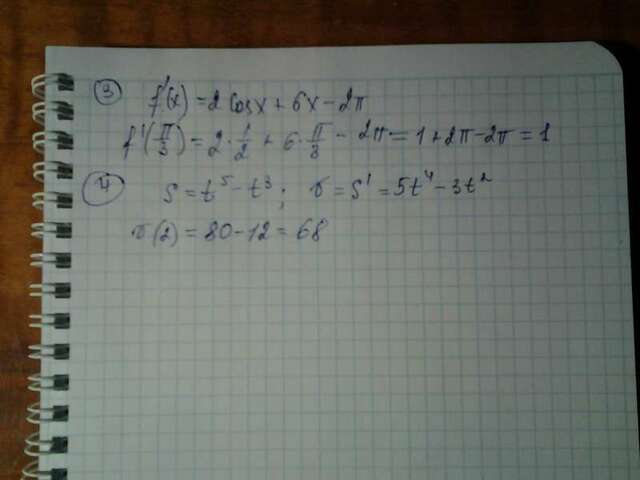 ③ f'(x) = 2 cos x + 6x - 2π
f'(π/3) = 2 · 1/2 + 6 · π/3 - 2π = 1 + 2π - 2π = 1
④ S = t⁵ - t³ ; v = S' = 5t⁴ - 3t²
v(2) = 80 - 12 = 68